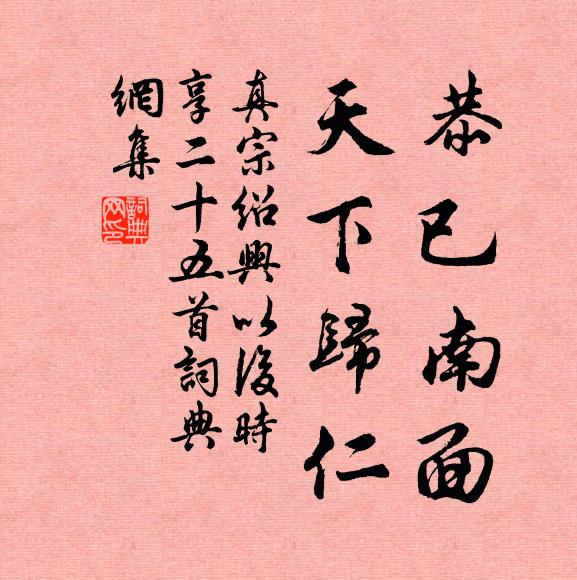 恭已南面
天下歸仁
真宗紹興以後時
享二十五首詞典
網集
詞典
网印